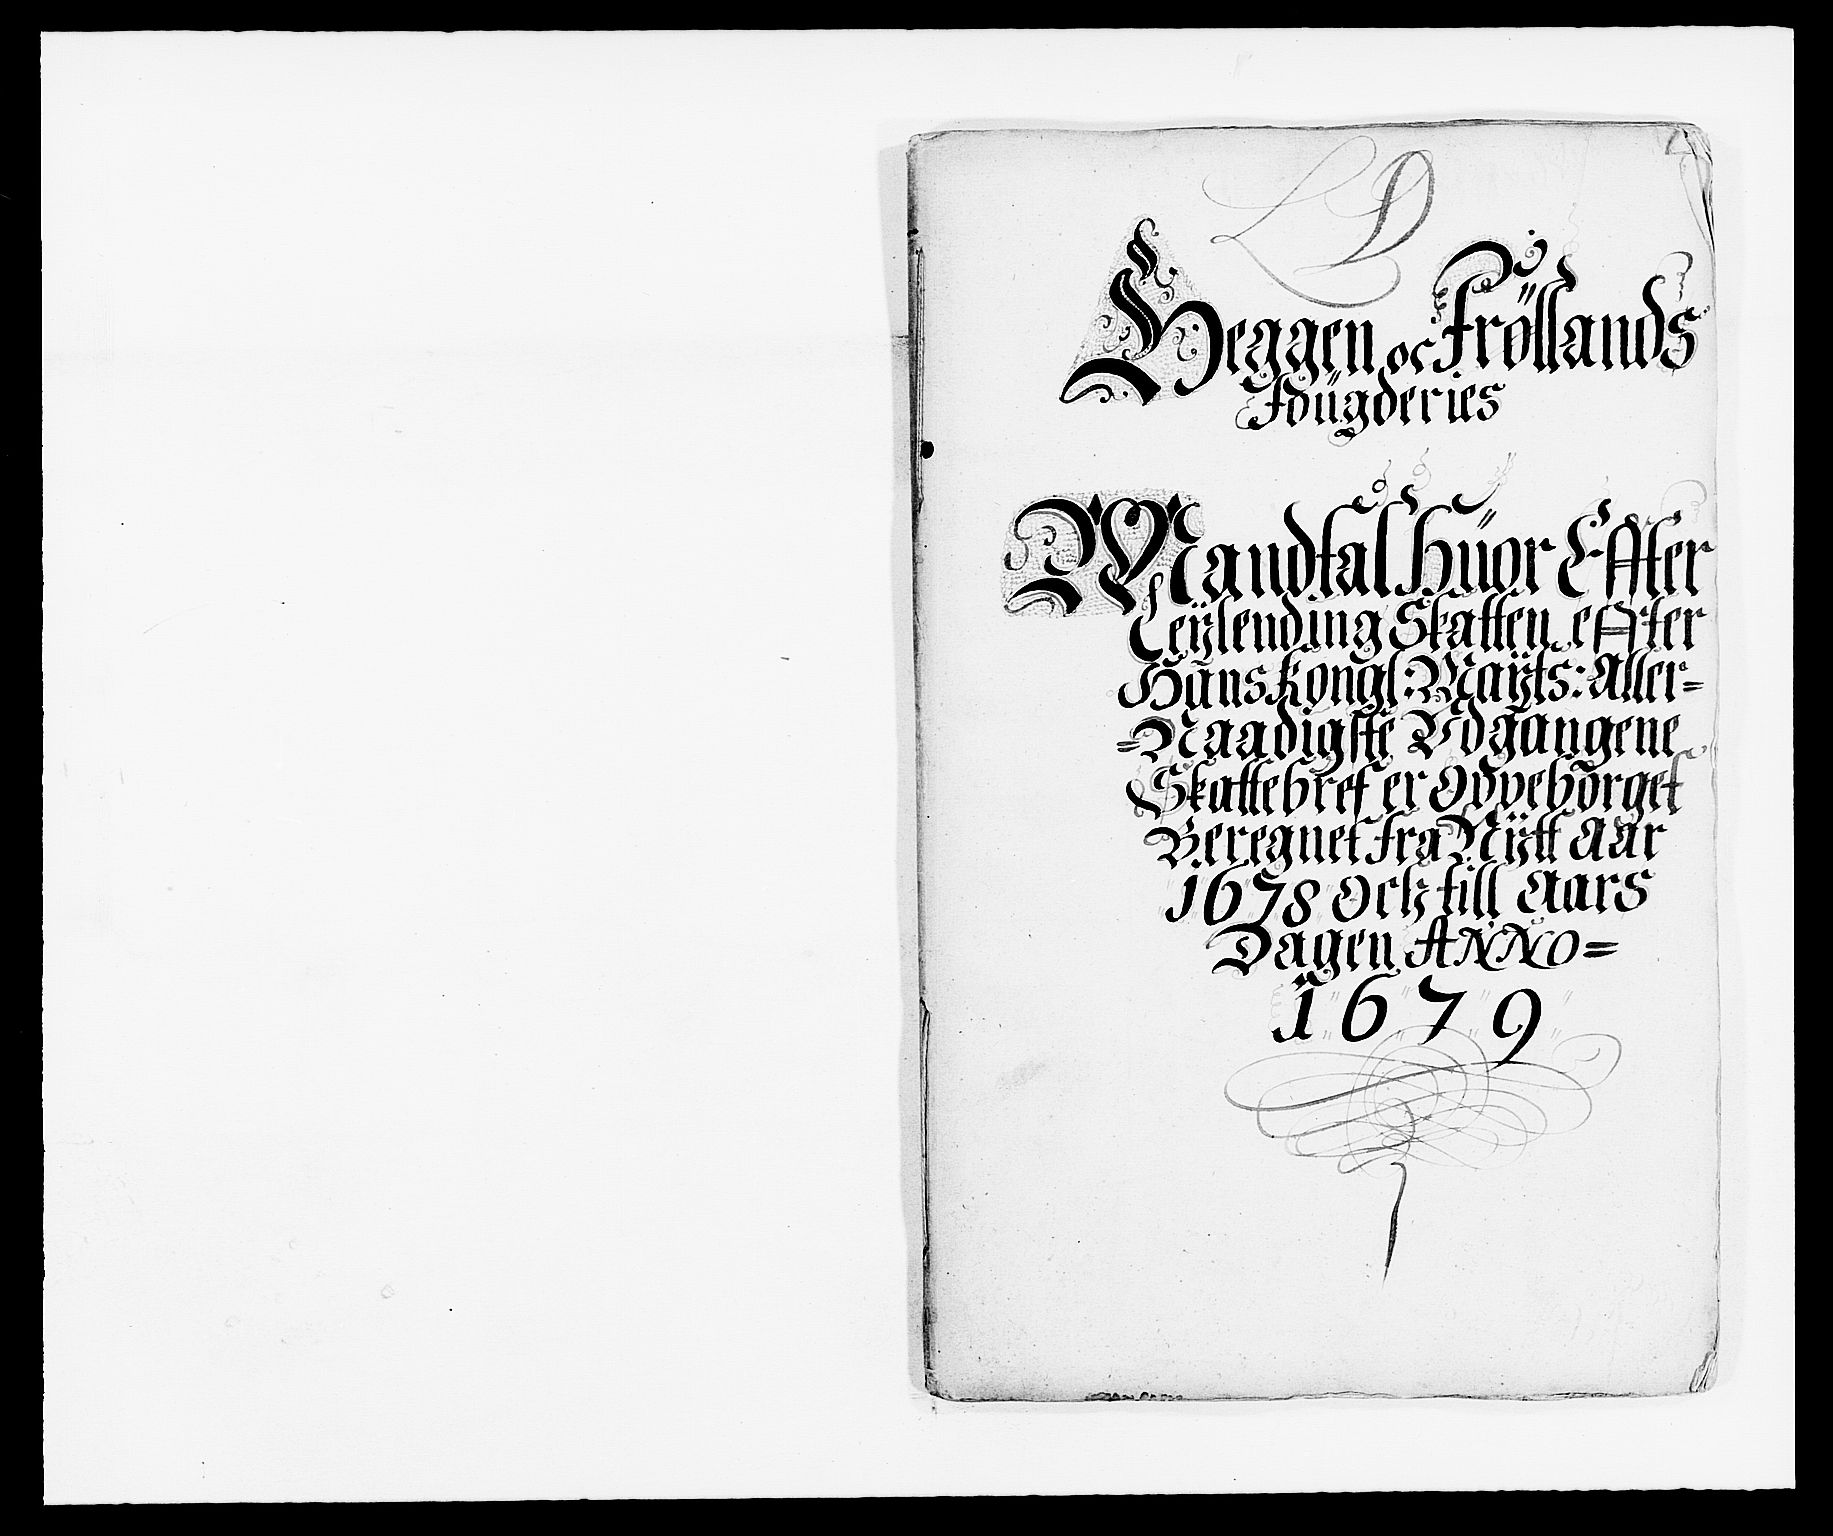 LD
Heggen oc Fröllands
Fougderies
Mandtal Huor Effter
Leÿlending Skatten effter
Hans Kongl: Maÿts: Aller=
=Naadigste Udgangene
Skattebref er Opveborget
Beregnet fra Nÿtt Aar
1678 Och till Aars
Dagen ANNO=
1679